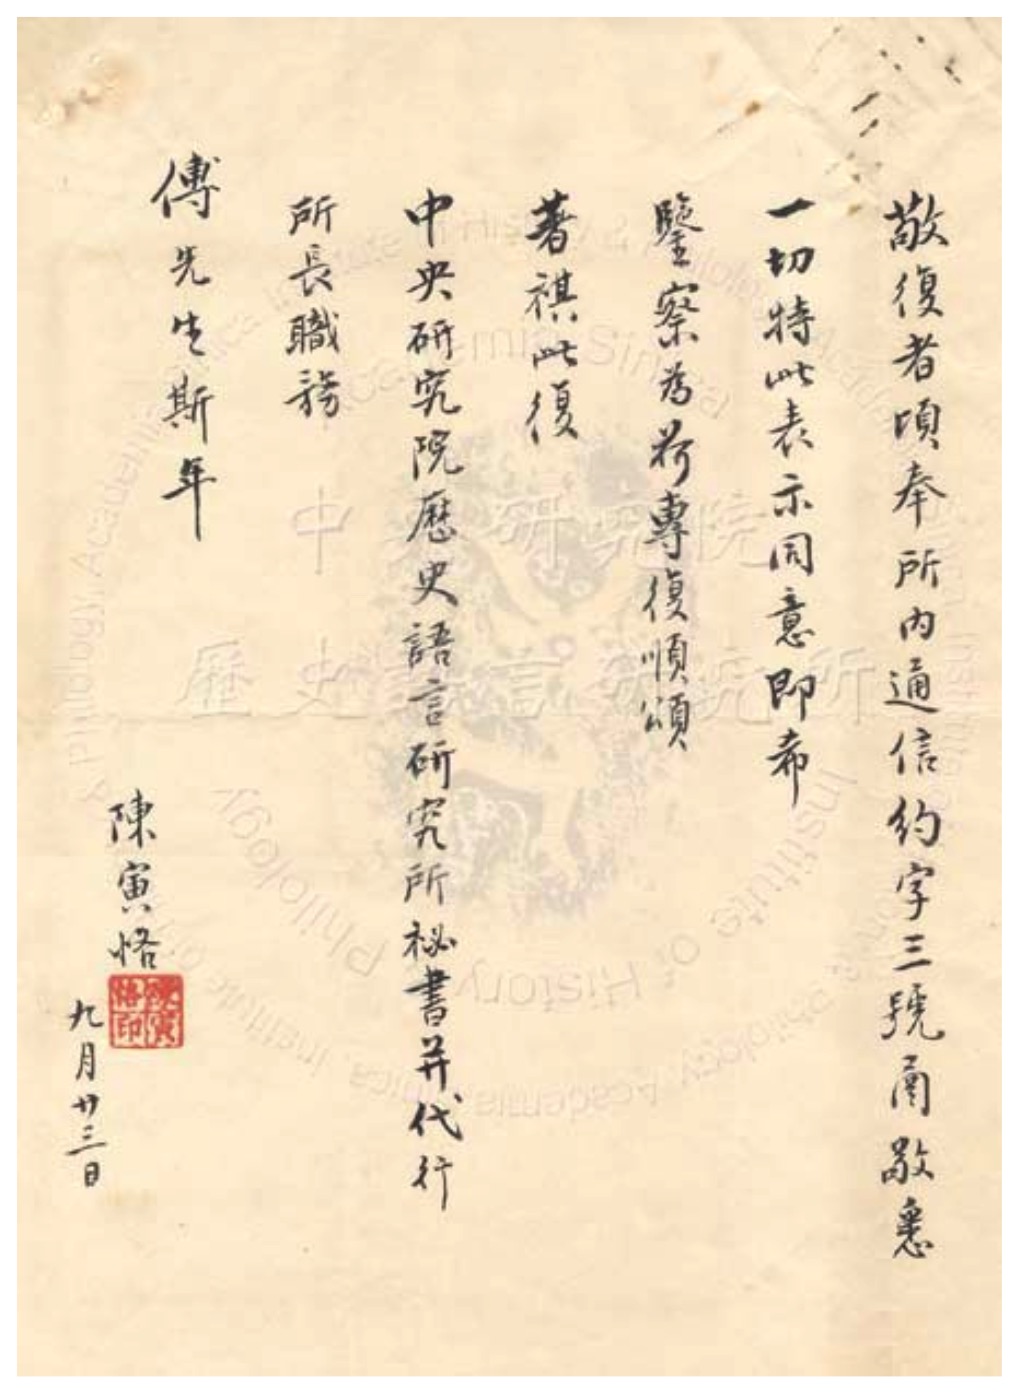 敬復者頃奉所內通信約字三號函敬悉
一切特此表示同意即希
鑒察為荷專復順頌
著祺此復
中央研究院歷史語言研究所祕書并代行
所長職務
傅先生斯年
陳寅恪
陳寅恪印
九月廿三日
中央研究院
歷史語言研究所
Institute of History & Philology Academia Sinica